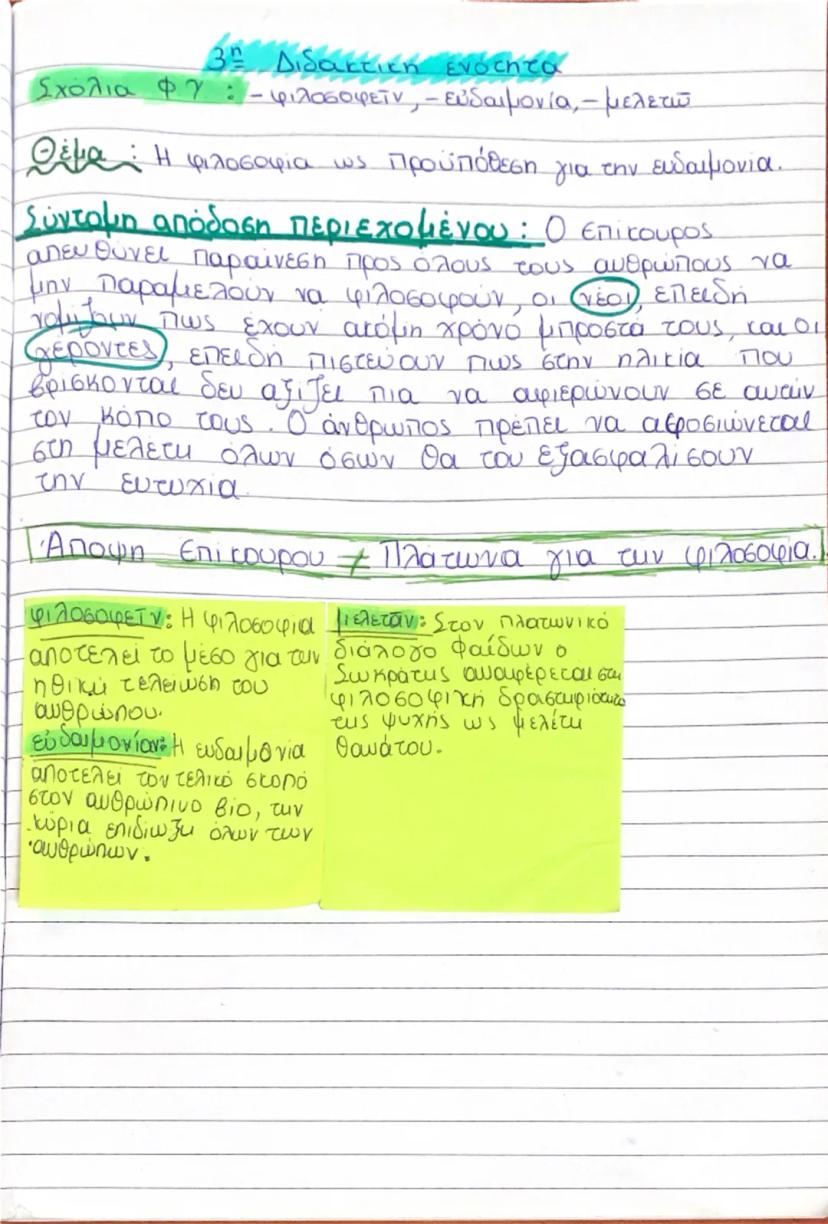 3η Διδακτική ενότητα
Σχόλια Φ γ : - φιλοσοφεῖν, - εὐδαιμονία, - μελετῶ
Θέμα : Η φιλοσοφία ως προϋπόθεση για την ευδαιμονία.
Σύντομη απόδοση περιεχομένου : Ο Επίκουρος
απευθύνει παραίνεση προς όλους τους ανθρώπους να
μην παραμελούν να φιλοσοφούν, οι νέοι, επειδή
νομίζουν πως έχουν ακόμη χρόνο μπροστά τους, και οι
γέροντες, επειδή πιστεύουν πως στην ηλικία που
βρίσκονται δεν αξίζει πια να αφιερώνουν σε αυτήν
τον κόπο τους. Ο άνθρωπος πρέπει να αφοσιώνεται
στη μελέτη όλων όσων θα του εξασφαλίσουν
την ευτυχία.
Άποψη Επίκουρου ≠ Πλάτωνα για την φιλοσοφία.
φιλοσοφεῖν: Η φιλοσοφία
αποτελεί το μέσο για την
ηθική τελείωση του
ανθρώπου.
εὐδαιμονίαν: Η ευδαιμονία
αποτελεί τον τελικό σκοπό
στον ανθρώπινο βίο, την
κύρια επιδίωξη όλων των
ανθρώπων.
μελετᾶν: Στον πλατωνικό
διάλογο Φαίδων ο
Σωκράτης αναφέρεται στη
φιλοσοφική δραστηριότητα
της ψυχής ως μελέτη
θανάτου.